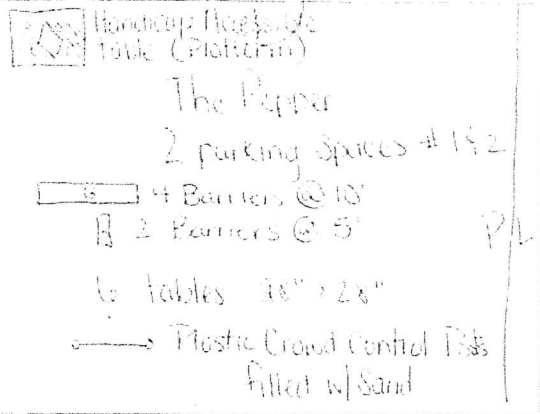 Handicap Accessible
table (Platform)
The Pepper
2 parking spaces # 1 & 2
B 4 Barriers @ 10'
B 2 Barriers @ 5'
PL
6 tables 28" x 28"
Plastic Crowd Control Posts
filled w/ Sand